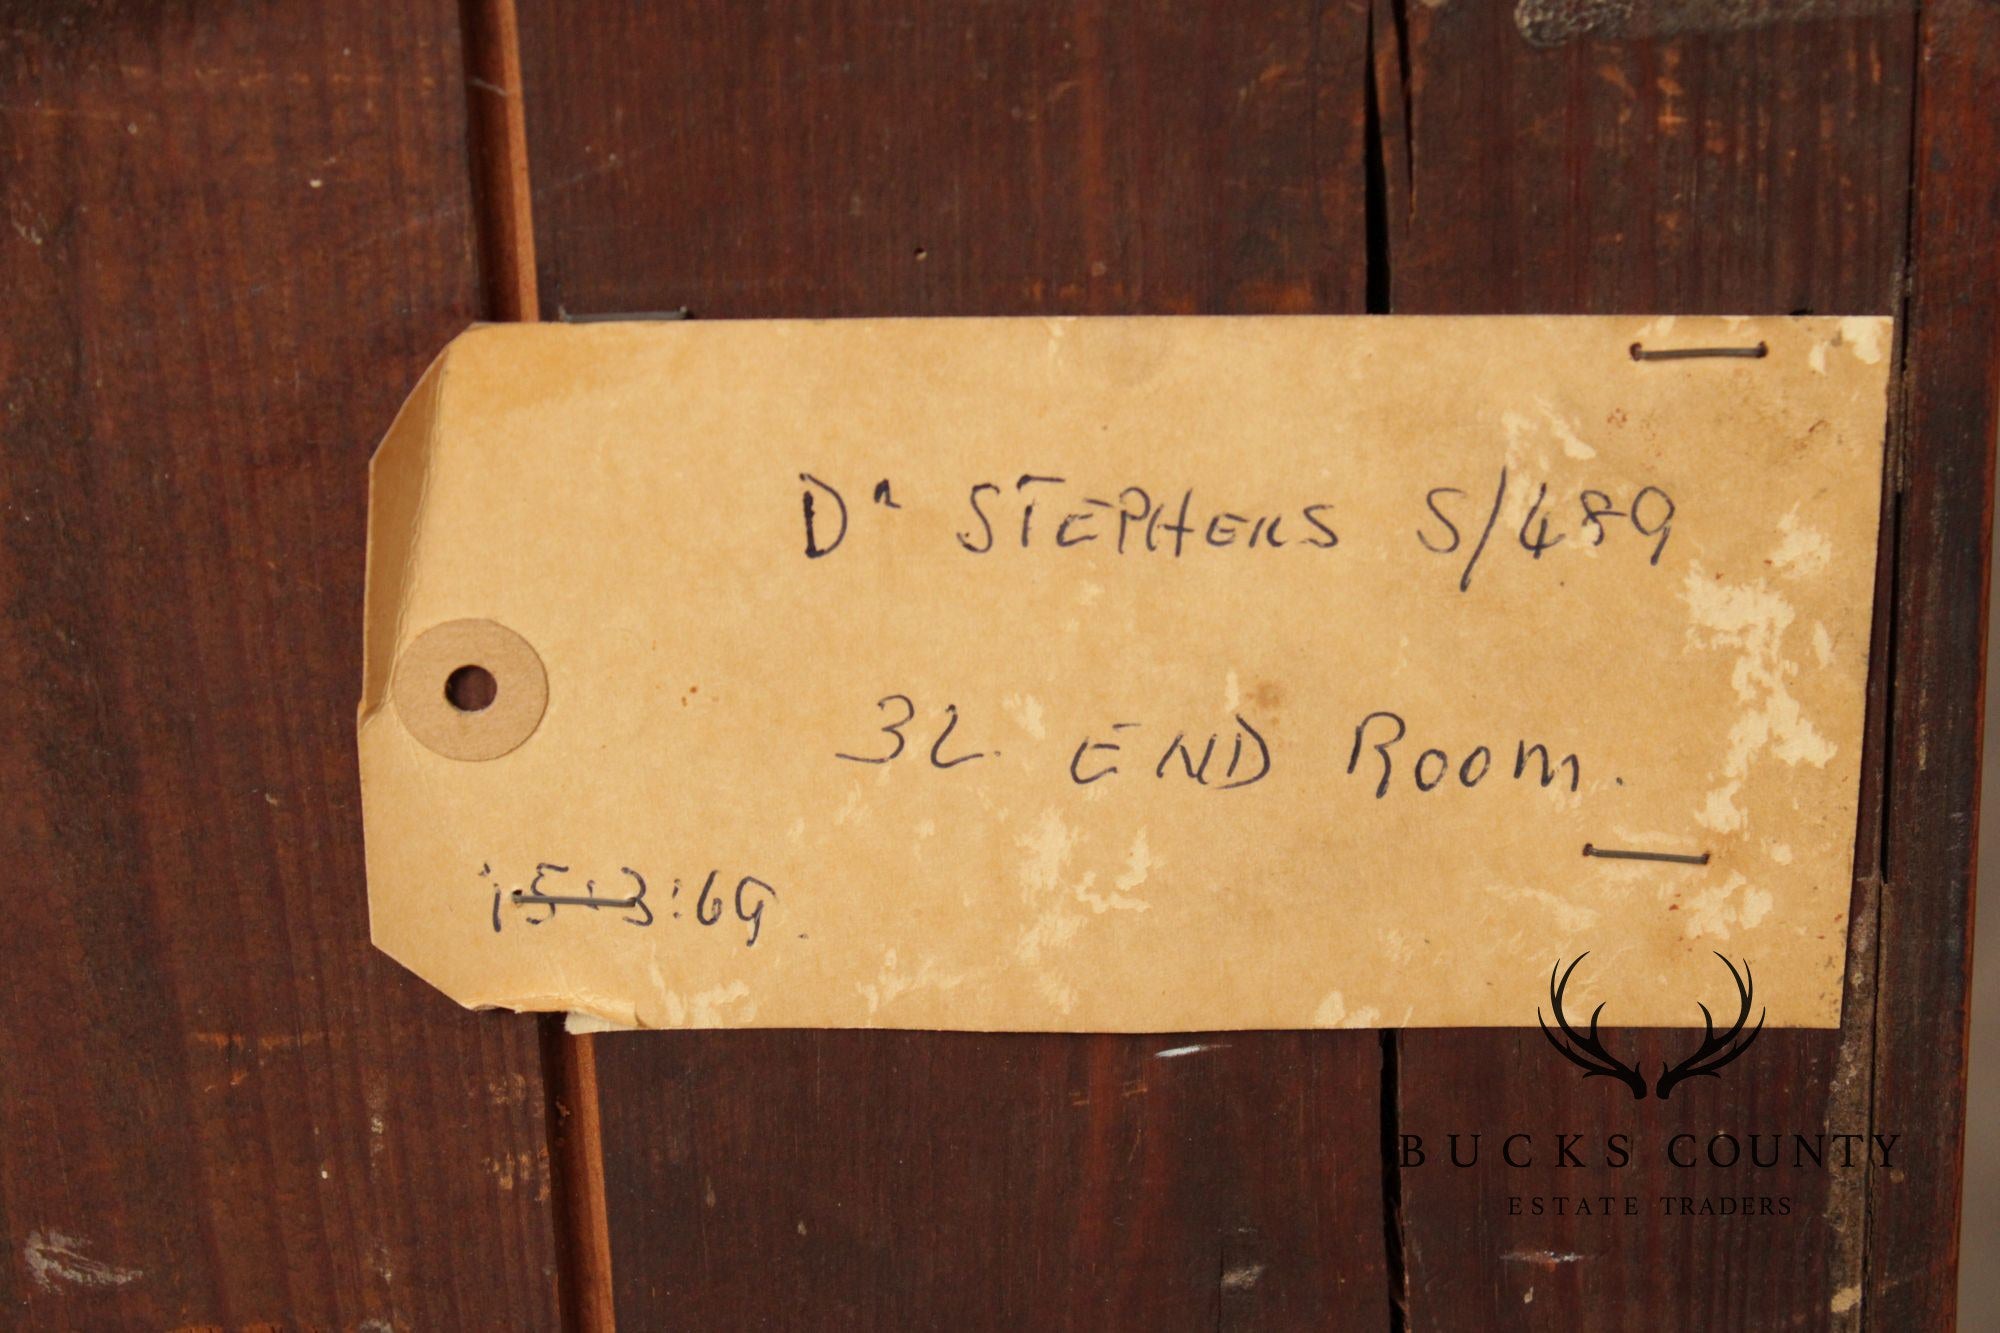 Dr STEPHENS S/489
32. END ROOM.
15:3:69.
BUCKS COUNTY
ESTATE TRADERS